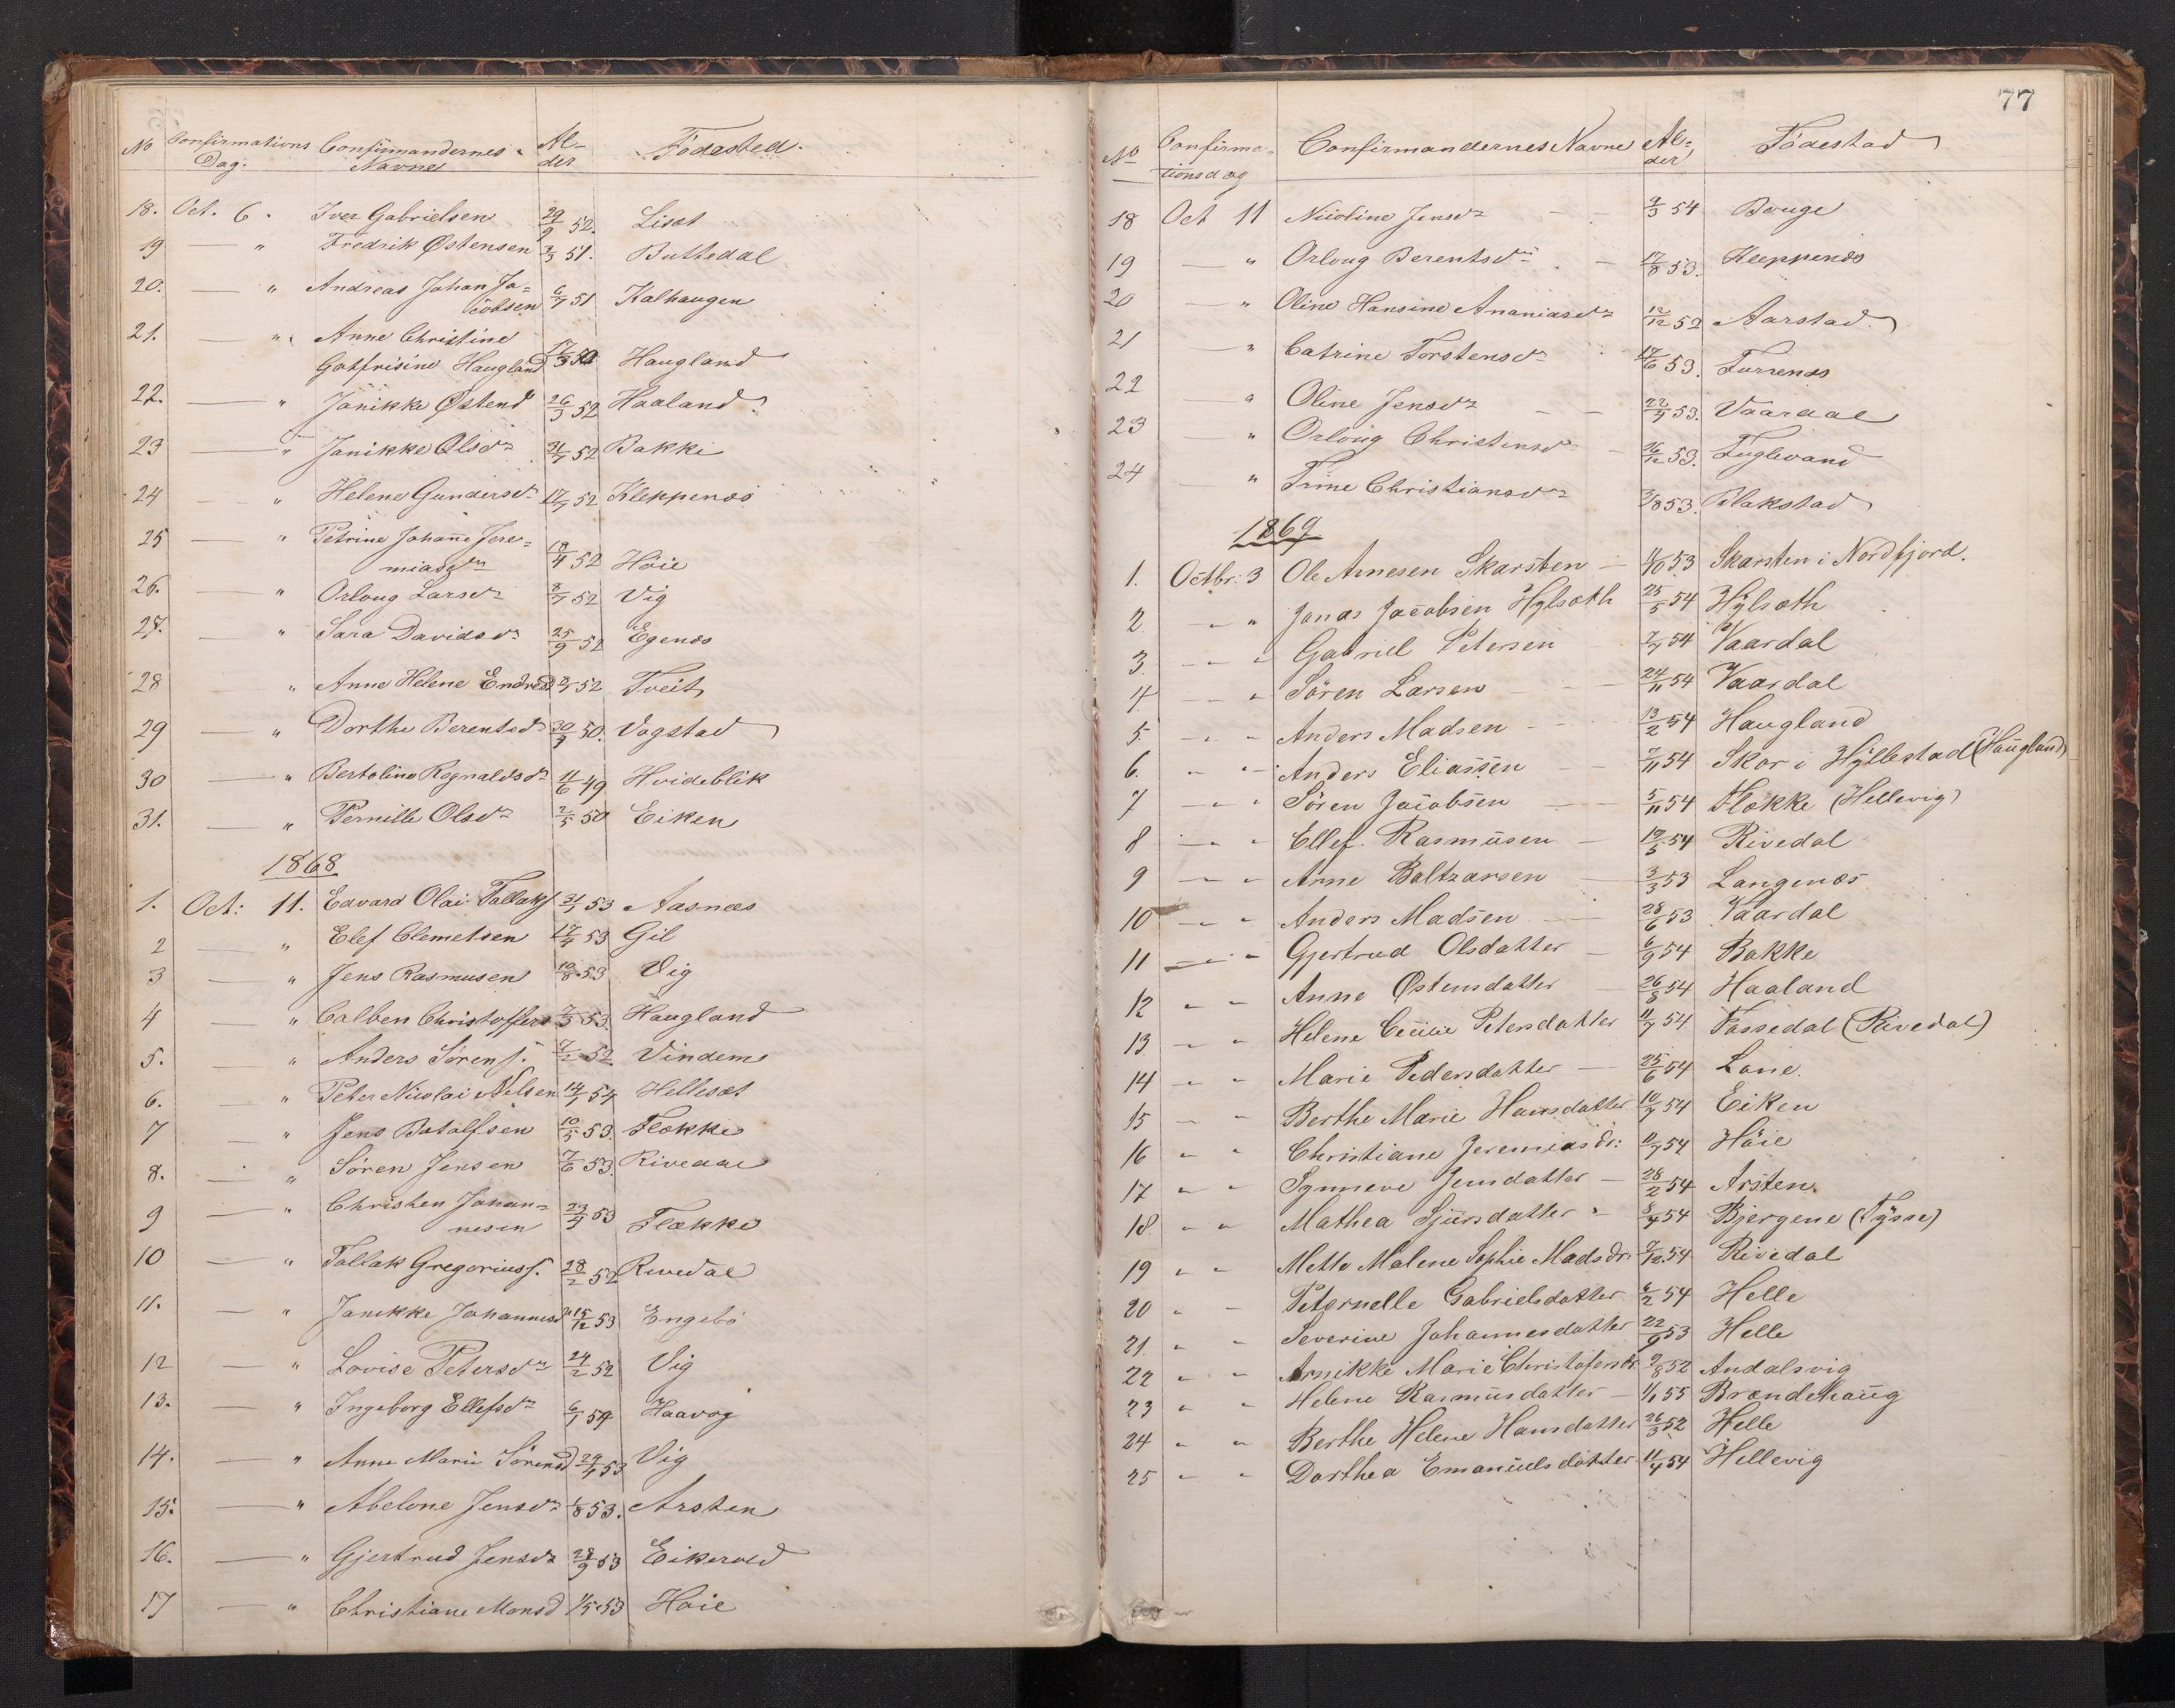 No Confirmations Dag. Confirmandernes Navne Al-der Födested.
18. Oct. 6. Iver Gabrielsen 29/9 52. Lisæt
19 — " Fredrik Østensen 3/3 51. Buttedal
20. — " Andreas Johan Ja=
cobsen 6/7 51 Kalhaugen
21. — " Anne Christine
Gatfrisine Haugland 50 Haugland
22. — " Janikke Østend 26/3 52 Haaland
23 — " Janikke Olsdr 31/7 52 Bakke
24 — " Helene Gundersdr 17/7 52 Kleppenæs
25 — " Petrine Johane Jere=
miasdr 18/4 52 Höie
26. — " Orloug Larsdr 8/7 52 Vig
27. — " Sara Davidsdr 25/9 52 Egenæs
28 " Anne Helene Endresd 52 Tveit
29 — " Dorthe Berentsdr 30/9 50. Vagstad
30 — " Bertoline Rognaldsdr 11/6 49 Hvideblik
31. — " Pernille Olsdr 2/5 50 Eiken
1868
1. Oct: 11. Edvard Olai Tallaks 31/7 53 Aasnæs
2 — " Elef Clemetsen 17/4 53 Gil
3 — " Jens Rasmusen 10/8 53 Vig
4 — " Calben Christoffers 7/3 53. Haugland
5. — " Anders Sörens. 7/2 52 Vindem
6. — " Peter Nicolai Nilsen 14/1 54 Hellesæt
7 — " Jens Batalfsen 10/5 53. Flække
8. " Sören Jensen 7/6 53. Rivedal
9 — " Christen Johan-
nesen 23/4 53 Flække
10 — " Tallak Gregoriuss. 28/2 52 Rivedal
11. — " Janikke Johannesdr 15/12 53 Engebö
12 — " Lovise Petersdr 24/2 52 Vig
13. — " Ingeborg Ellefsdr 6/1 54 Haavog
14. — " Anne Marie Sörensd 29/4 53 Vig
15. — " Abelone Jensdr 1/8 53. Arsten
16. — " Gjertrud Jensdr 28/9 53 Eikevold
17 — " Christiane Monsd 1/5 53 Höie
77
No Confirma-tionsdag Confirmandernes Navne Al-der Födestad
18 Oct 11 Nicoline Jensdr 9/3 54 Bouge
19 — " Orloug Berentsdr 17/8 53. Kleppenæs
20 — " Oline Hansine Ananiasdr 12/12 52 Aarstad
21 — " Catrine Torstensdr 17/6 53. Furrenæs
22 — " Oline Jensdr 22/9 53. Vaardal
23 " Orloug Christensdr 26/12 53. Fuglevand
24 — " Trine Christiansdr 3/8 53. Blakstad
1869
1. Octbr: 3 Ole Arnesen Skarsten — 11/10 53 Skarsten i Nordfjord.
2 - " Jonas Jacobsen Hylsæth 25/5 54 Hylsæth
3 - - " Gabriel Petersen 2/7 54 Vaardal
4 - - " Sören Larsen 24/11 54 Vaardal
5 - - Anders Madsen 13/2 54 Haugland
6. - - Anders Eliassen 7/11 54 Skor i Hyllestad (Haugland)
7 - - Sören Jacobsen 5/11 54 Flække (Hellevig)
8 - - Ellef. Rasmusen 12/5 54 Rivedal
9 - - Arne Baltzarsen 3/3 53 Langenæs
10 - - Anders Madsen 28/6 53 Vaardal
11 - - Gjertrud Olsdatter 6/9 54 Bakke
12 - - Anne Østensdatter 26/8 54 Haaland
13 - - Helene Cecilie Petersdatter 11/7 54 Fassedal (Rivedal)
14 - - Marie Pedersdatter 25/6 54 Lone.
15 - - Berthe Marie Hansdatter 10/7 54 Eiken
16 - - Christiane Jeremiasdr: 11/7 54 Höie
17 - - Synneve Jensdatter 28/2 54 Arsten.
18. - - Mathea Sjursdatter 8/4 54 Bjergene (Tysse)
19 - - Mette Malene Sophie Madsdr: 7/12 54 Rivedal
20 - - Peternelle Gabrielsdatter 6/2 54 Helle
21. - - Severine Johannesdatter 22/9 53 Helle
22 - - Arnikke Marie Christofersdr. 9/8 52 Andalsvig
23 - - Helene Rasmusdatter — 1/1 55 Brændehaug
24 - - Berthe Helene Hansdatter 26/3 52 Helle
25 - - Dorthea Emanuelsdatter 11/4 54 Hellevig